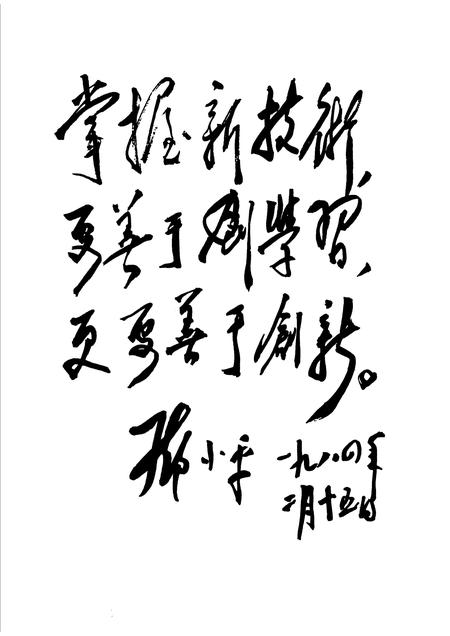 掌握新技術，
要善于學習，
更要善于創新。
邓小平 一九八四年
二月十五日